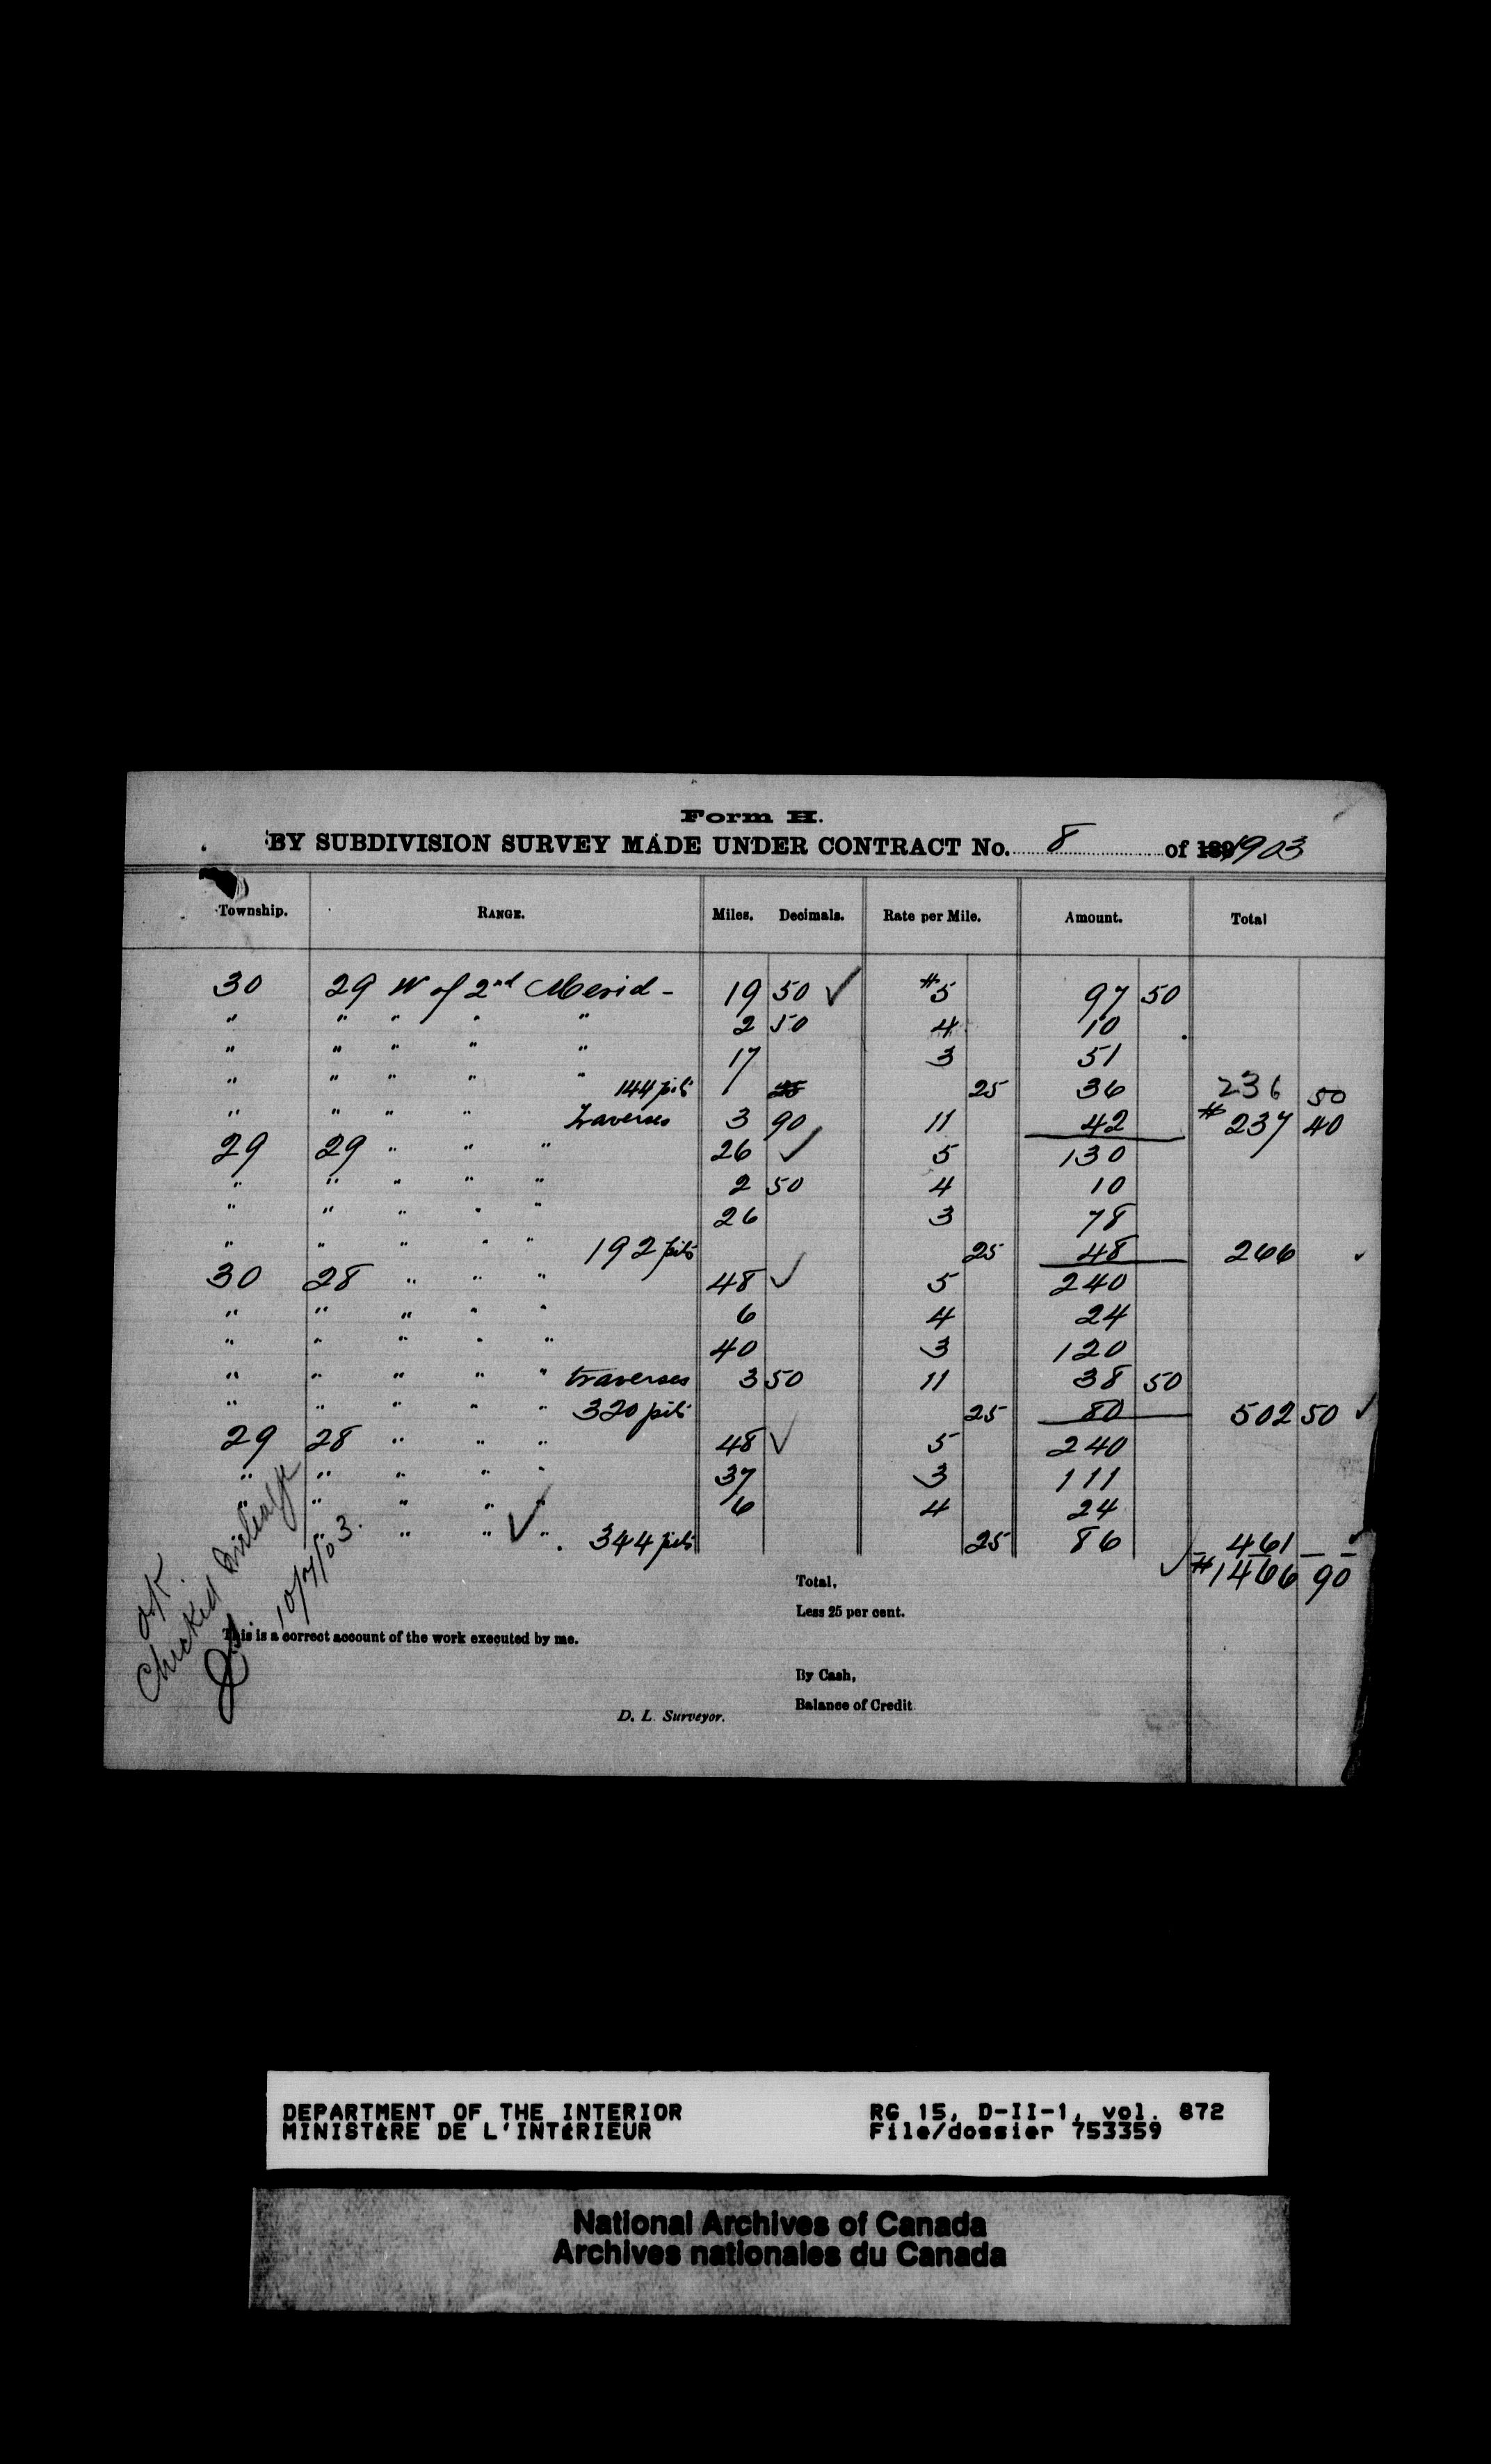 Form H.
BY SUBDIVISION SURVEY MADE UNDER CONTRACT No. 8 of 189 1903
Township. RANGE. Miles. Decimals. Rate per Mile. Amount. Total
30 29 W of 2nd Merid - 19 50 ✓ $5 97 50
" " " " " 2 50 4 10
" " " " " 17 3 51
" " " " " 144 pits 25 25 36 236 50
" " " " traverses 3 90 11 42 $237 40
29 29 " " " 26 ✓ 5 130
" " " " " 2 50 4 10
" " " " " 26 3 78
" " " " " 192 pits 25 48 266 ✓
30 28 " " " 48 ✓ 5 240
" " " " " 6 4 24
" " " " " 40 3 120
" " " " " traverses 3 50 11 38 50
" " " " " 320 pits 25 80 502 50 ✓
29 28 " " " 48 ✓ 5 240
" " " " " 37 3 111
" " " " " 6 4 24
" " " ✓ " 344 pits 25 86 461 — — ✓
✓ $1466 90
Total,
Less 25 per cent.
This is a correct account of the work executed by me.
By Cash,
Balance of Credit
D. L. Surveyor.
OK
Checked Mileage
10/7/03.
DEPARTMENT OF THE INTERIOR RG 15, D-II-1, vol. 872
MINISTÈRE DE L'INTÉRIEUR File/dossier 753359
National Archives of Canada
Archives nationales du Canada